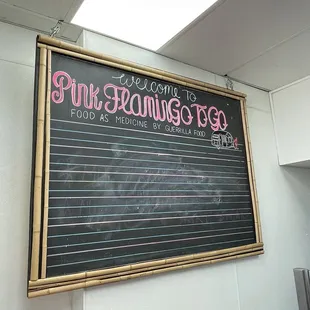 Welcome to
Pink Flamingo To Go
FOOD AS MEDICINE BY GUERRILLA FOOD